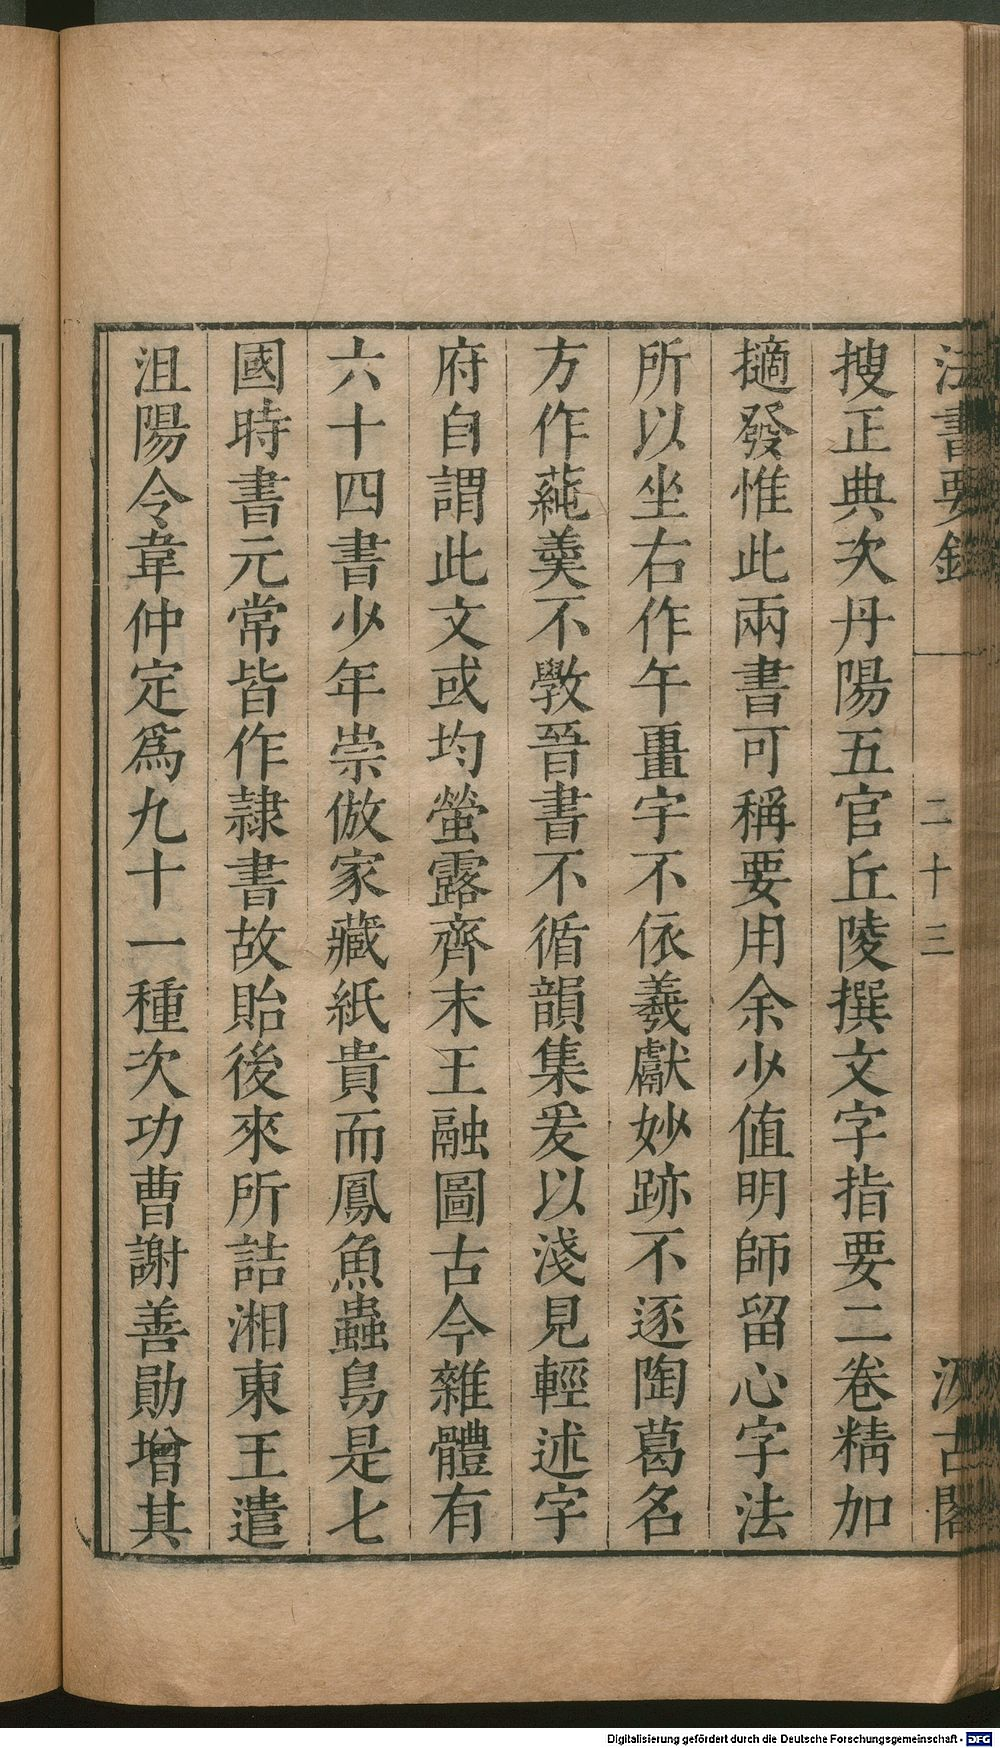 法書要錄
二十三
汲古閣
搜正典次丹陽五官丘陵撰文字指要二卷精加
擿發惟此兩書可稱要用余少值明師留心字法
所以坐右作午畫字不依羲獻妙跡不逐陶葛名
方作蒓羹不斅晉書不循韻集爰以淺見輕述字
府自謂此文或均螢露齊末王融圖古今雜體有
六十四書少年崇倣家藏紙貴而鳳魚蟲鳥是七
國時書元常皆作隷書故貽後來所詰湘東王遣
沮陽令韋仲定爲九十一種次功曹謝善勛增其
Digitalisierung gefördert durch die Deutsche Forschungsgemeinschaft - DFG